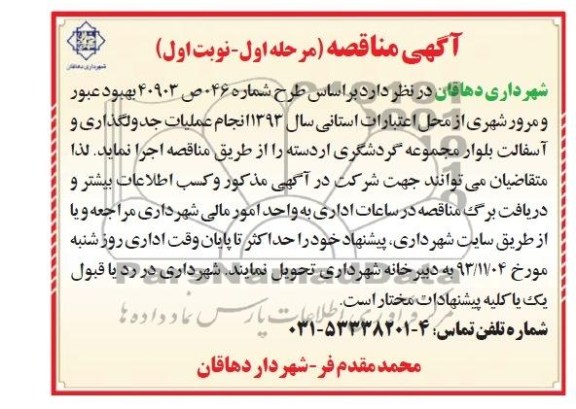 آگهی مناقصه (مرحله اول-نوبت اول)
شهرداری دهاقان
شهرداری دهاقان در نظر دارد بر اساس طرح شماره ۰۴۶ ص ۴۰۹۰۳ بهبود عبور
و مرور شهری از محل اعتبارات استانی سال ۱۳۹۳ انجام عملیات جدولگذاری و
آسفالت بلوار مجموعه گردشگری اردسته را از طریق مناقصه اجرا نماید. لذا
متقاضیان می توانند جهت شرکت در آگهی مذکور وکسب اطلاعات بیشتر و
دریافت برگ مناقصه در ساعات اداری به واحد امور مالی شهرداری مراجعه و یا
از طریق سایت شهرداری، پیشنهاد خود را حداکثر تا پایان وقت اداری روز شنبه
مورخ ۹۳/۱۱/۰۴ به دبیرخانه شهرداری تحویل نمایند. شهرداری در رد یا قبول
یک یا کلیه پیشنهادات مختار است.
ParsNamadData
مرکز فرآوری اطلاعات پارس نماد داده ها
شماره تلفن تماس: ۴-۵۳۳۳۸۲۰۱-۰۳۱
محمد مقدم فر-شهردار دهاقان